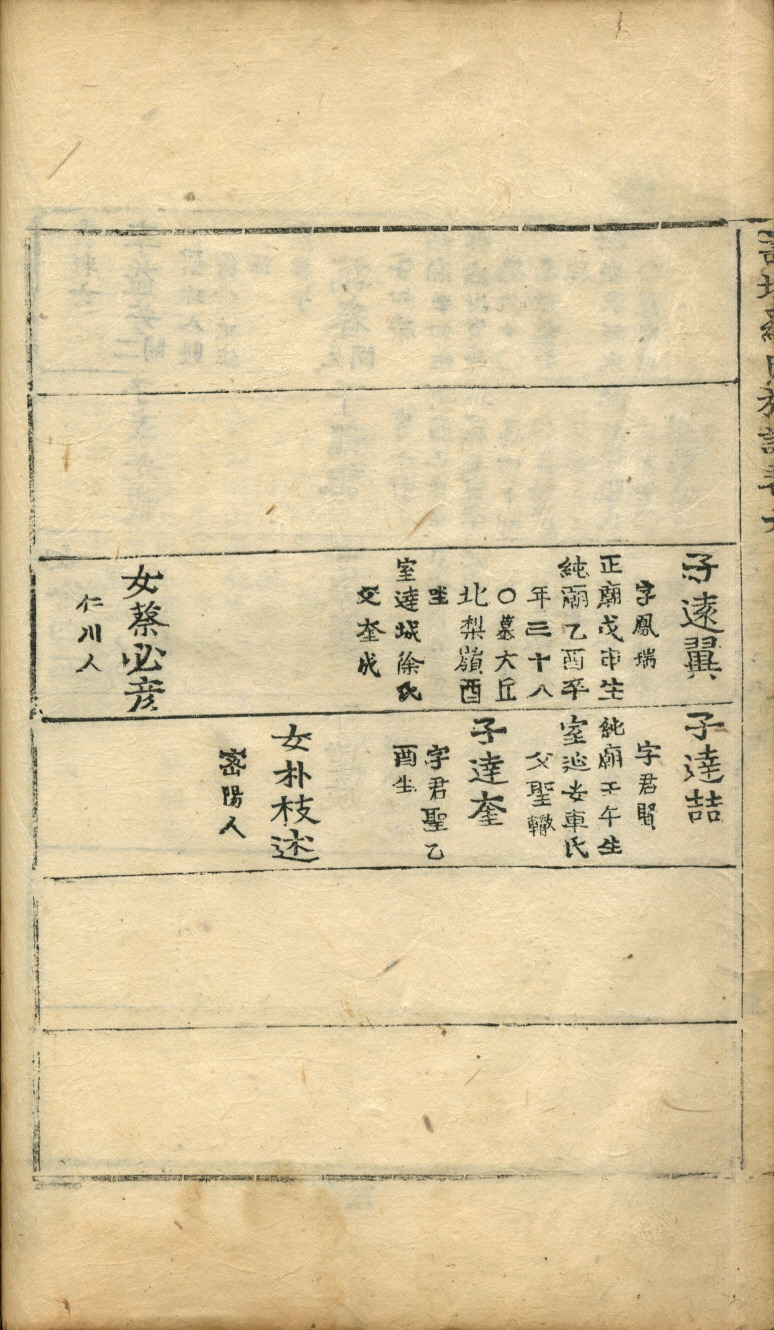 子遠翼
字鳳瑞
正廟戊申生
純廟乙酉卒
年三十八
〇墓大丘
北梨嶺酉
坐
室達城徐氏
父奎成
女蔡必彦
仁川人
子達喆
字君賢
純廟壬午生
室延安車氏
父聖轍
子達奎
字君聖乙
酉生
女朴枝述
密陽人